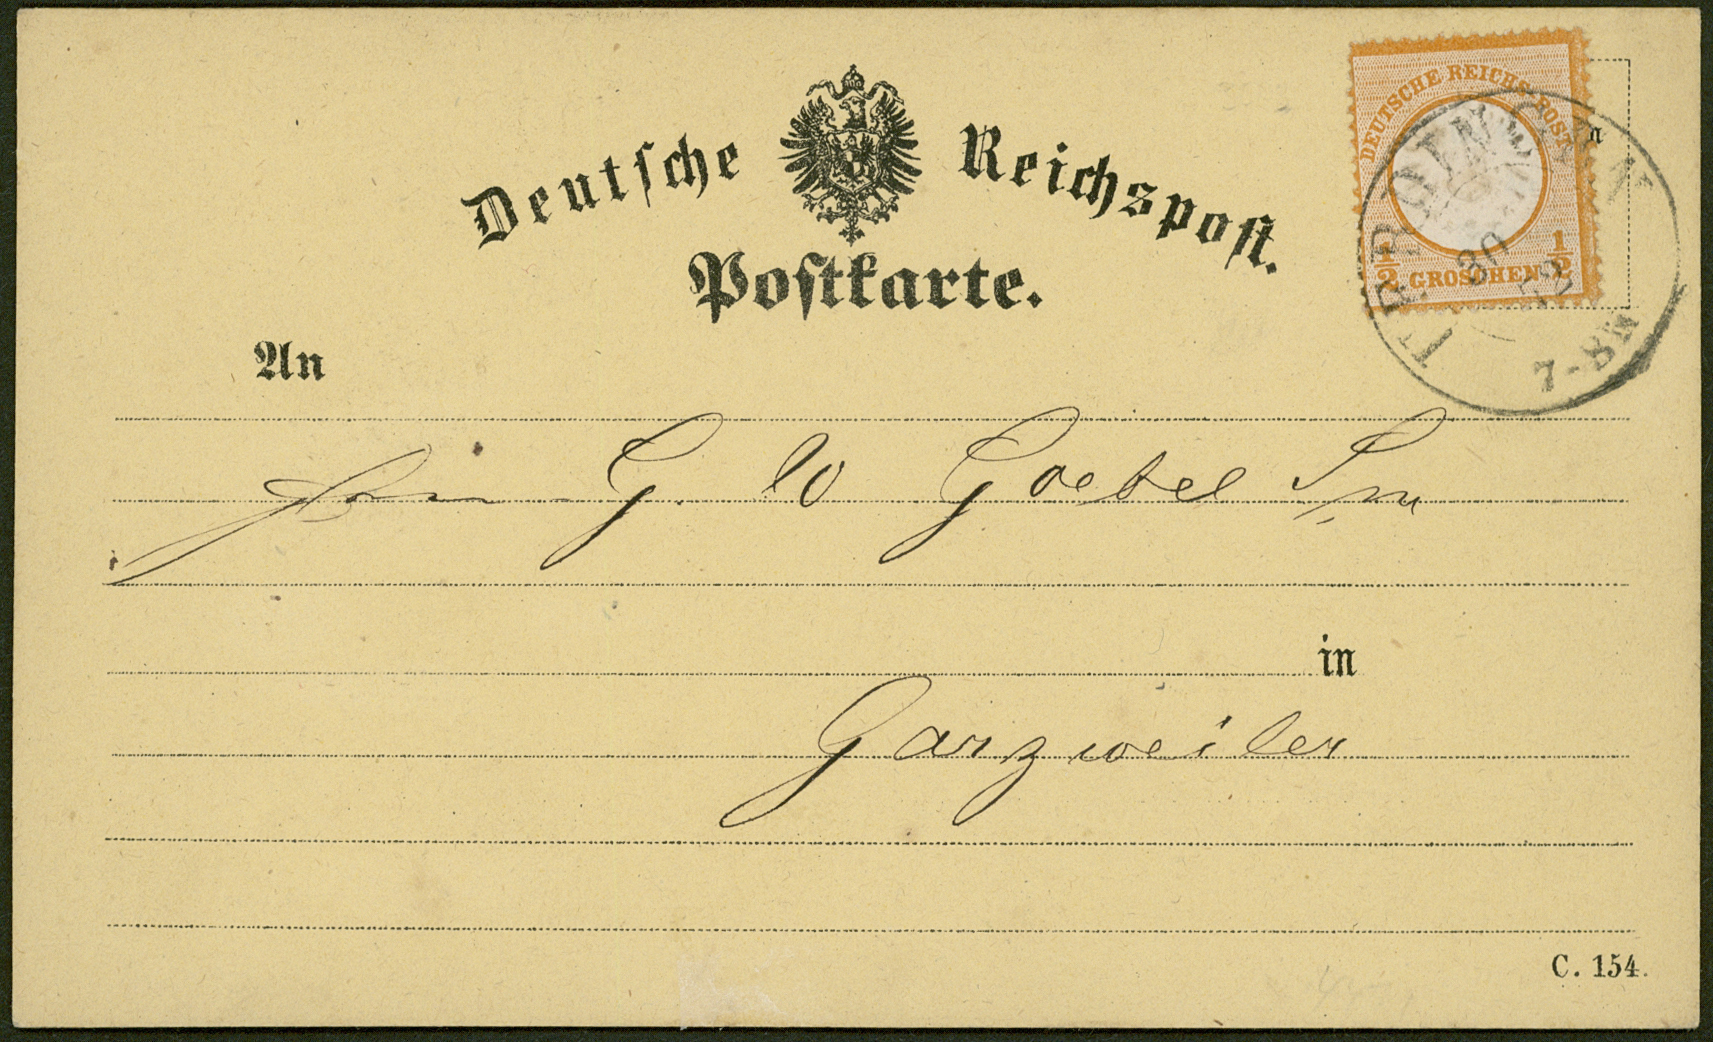 Deutsche Reichspost.
Postkarte.
DEUTSCHE REICHS-POST
1/2 GROSCHEN 1/2
30
7-8N
An
Herrn G. W Goebel Sen
in
Garzweiler
C. 154.